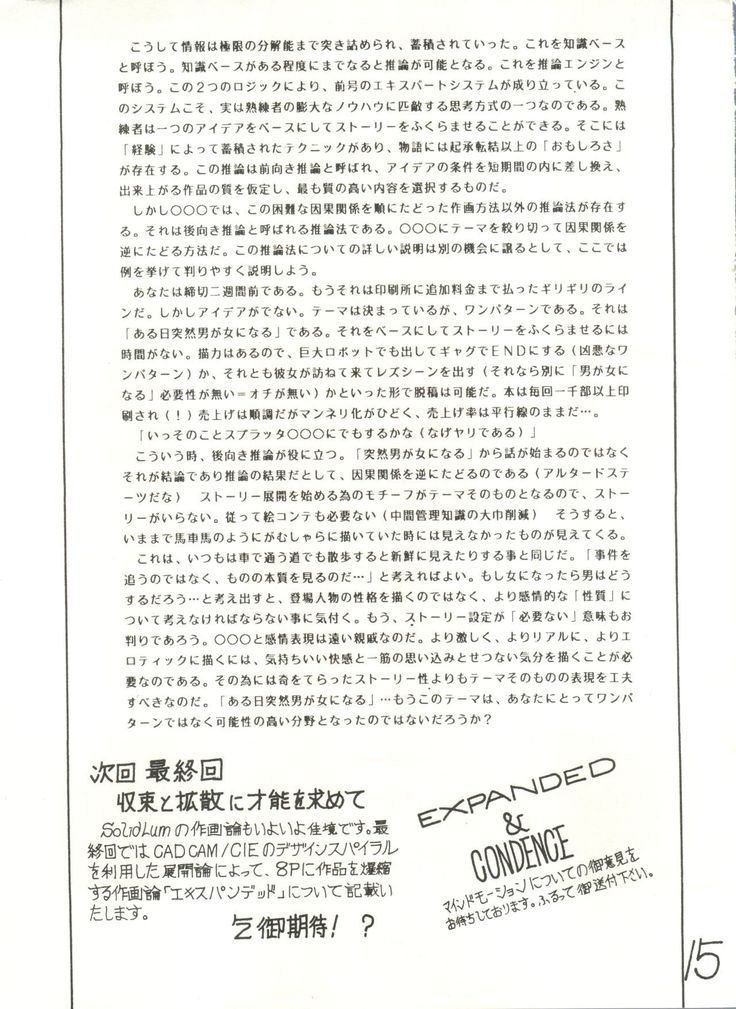 こうして情報は極限の分解能まで突き詰められ、蓄積されていった。これを知識ベース
と呼ぼう。知識ベースがある程度にまでなると推論が可能となる。これを推論エンジンと
呼ぼう。この２つのロジックにより、前号のエキスパートシステムが成り立っている。こ
のシステムこそ、実は熟練者の膨大なノウハウに匹敵する思考方式の一つなのである。熟
練者は一つのアイデアをベースにしてストーリーをふくらませることができる。そこには
「経験」によって蓄積されたテクニックがあり、物語には起承転結以上の「おもしろさ」
が存在する。この推論は前向き推論と呼ばれ、アイデアの条件を短期間の内に差し換え、
出来上がる作品の質を仮定し、最も質の高い内容を選択するものだ。
しかし○○○では、この困難な因果関係を順にたどった作画方法以外の推論法が存在す
る。それは後向き推論と呼ばれる推論法である。○○○にテーマを絞り切って因果関係を
逆にたどる方法だ。この推論法についての詳しい説明は別の機会に譲るとして、ここでは
例を挙げて判りやすく説明しよう。
あなたは締切二週間前である。もうそれは印刷所に追加料金まで払ったギリギリのライ
ンだ。しかしアイデアがでない。テーマは決まっているが、ワンパターンである。それは
「ある日突然男が女になる」である。それをベースにしてストーリーをふくらませるには
時間がない。描力はあるので、巨大ロボットでも出してギャグでＥＮＤにする（凶悪なワ
ンパターン）か、それとも彼女が訪ねて来てレズシーンを出す（それなら別に「男が女に
なる」必要性が無い＝オチが無い）かといった形で脱稿は可能だ。本は毎回一千部以上印
刷され（！）売上げは順調だがマンネリ化がひどく、売上げ率は平行線のままだ…。
「いっそのことスプラッタ○○○にでもするかな（なげヤリである）」
こういう時、後向き推論が役に立つ。「突然男が女になる」から話が始まるのではなく
それが結論であり推論の結果だとして、因果関係を逆にたどるのである（アルタードステ
ーツだな）　ストーリー展開を始める為のモチーフがテーマそのものとなるので、ストー
リーがいらない。従って絵コンテも必要ない（中間管理知識の大巾削減）　そうすると、
いままで馬車馬のようにがむしゃらに描いていた時には見えなかったものが見えてくる。
これは、いつもは車で通う道でも散歩すると新鮮に見えたりする事と同じだ。「事件を
追うのではなく、ものの本質を見るのだ…」と考えればよい。もし女になったら男はどう
するだろう…と考え出すと、登場人物の性格を描くのではなく、より感情的な「性質」に
ついて考えなければならない事に気付く。もう、ストーリー設定が「必要ない」意味もお
判りであろう。○○○と感情表現は遠い親戚なのだ。より激しく、よりリアルに、よりエ
ロティックに描くには、気持ちいい快感と一筋の思い込みとせつない気分を描くことが必
要なのである。その為には奇をてらったストーリー性よりもテーマそのものの表現を工夫
すべきなのだ。「ある日突然男が女になる」…もうこのテーマは、あなたにとってワンパ
ターンではなく可能性の高い分野となったのではないだろうか？
次回 最終回
収束と拡散に才能を求めて
SolidLumの作画論もいよいよ佳境です。最
終回ではCADCAM/CIEのデザインスパイラル
を利用した展開論によって、8Pに作品を爆縮
する作画論「エキスパンデッド」について記載い
たします。
乞御期待！？
EXPANDED
&
CONDENCE
マインドモーションについての御意見を
お待ちしております。ふるって御送付下さい。
15